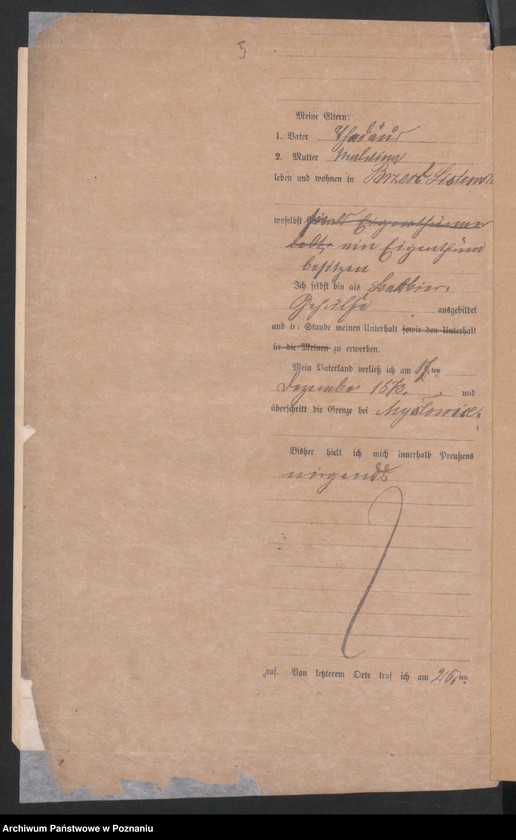 5
Meine Eltern:
1. Vater Thadäus
2. Mutter
leben und wohnen in Brzesc
woselbst
ein Eigenthum
besitzen
Ich selbst bin als Barbier
Gehülfe ausgebildet
und im Stande meinen Unterhalt sowie den Unterhalt
für die Meinen zu erwerben.
Mein Vaterland verließ ich am 17 ten
Dezember 1873. und
überschritt die Grenze bei Myslowitz
Bisher hielt ich mich innerhalb Preußens
nirgends
auf. Von letzterem Orte traf ich am 26 ten
Archiwum Państwowe w Poznaniu